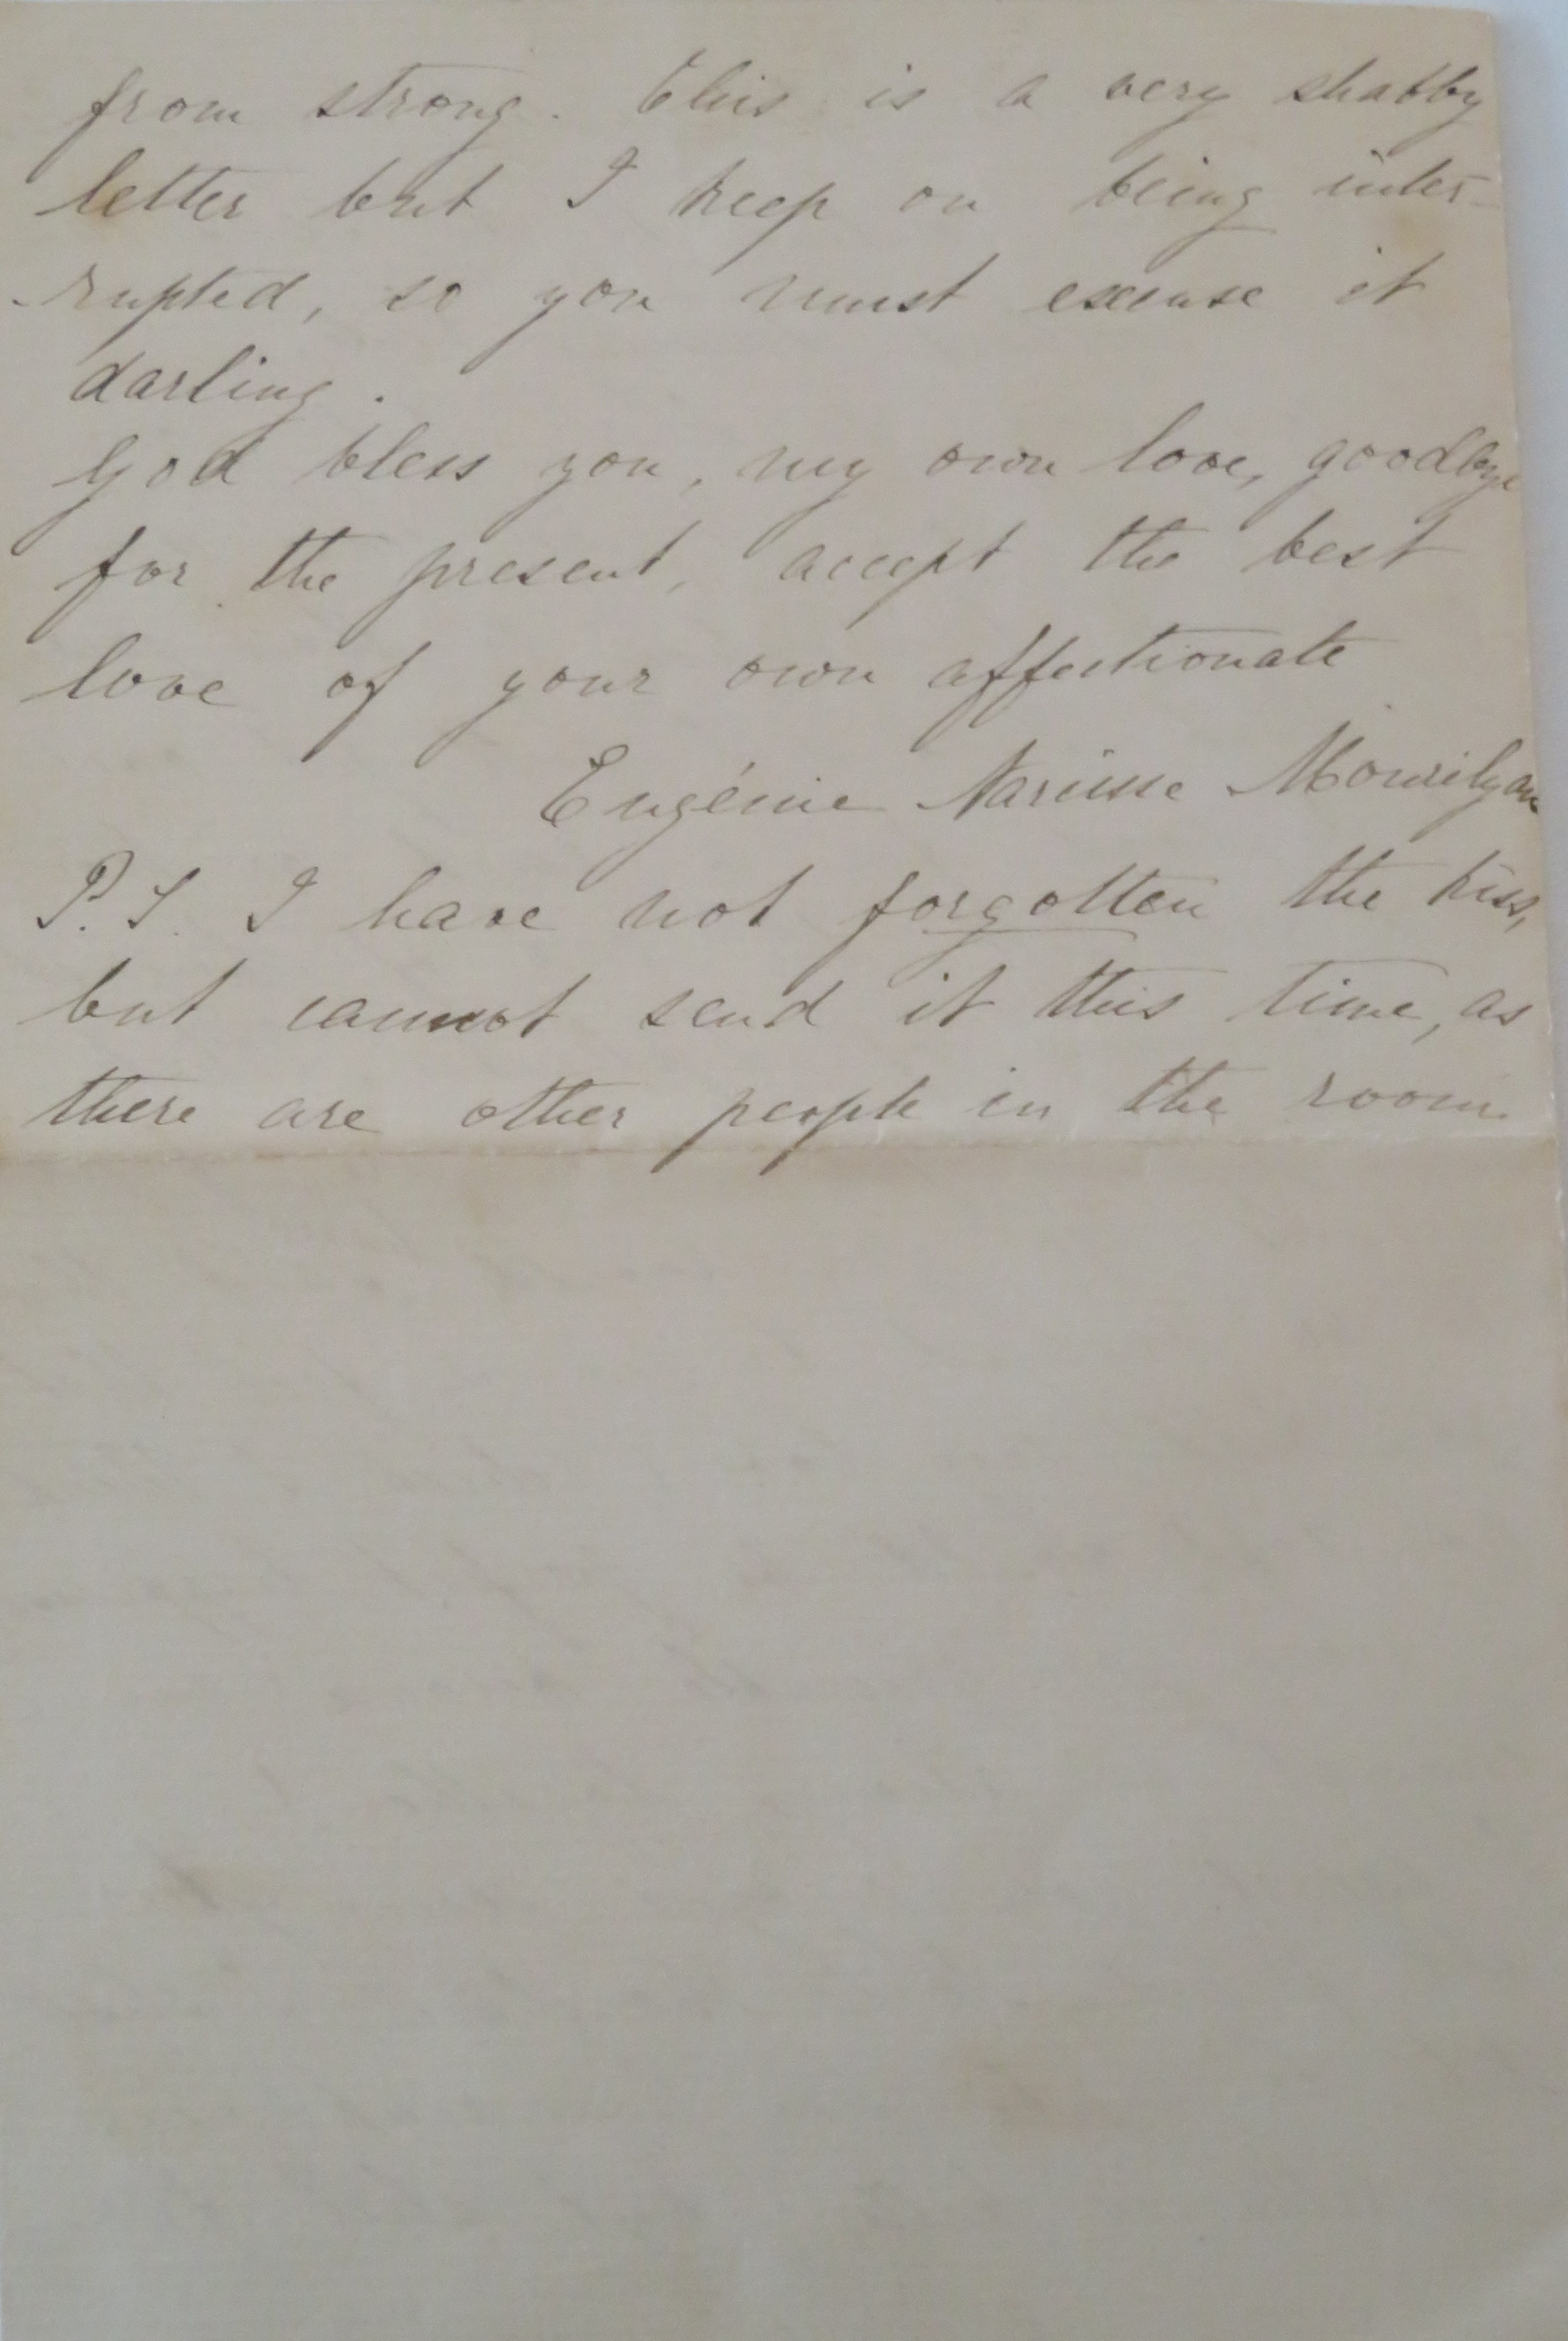 from strong. This is a very shabby
letter but I keep on being inter-
-rupted, so you must excuse it
darling.
God bless you, my own love, goodbye
for the present, accept the best
love of your own affectionate
Eugénie Narcisse Mourilyan
P.S. I have not forgotten the kiss,
but cannot send it this time, as
there are other people in the room